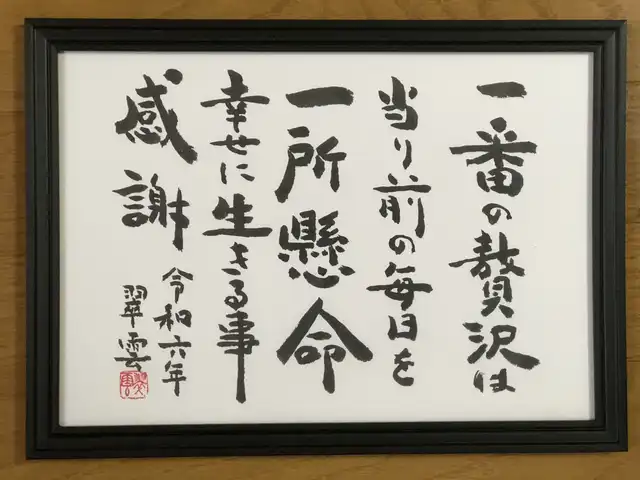 一番の贅沢は
当り前の毎日を
一所懸命
幸せに生きる事
感謝
令和六年
翠雲